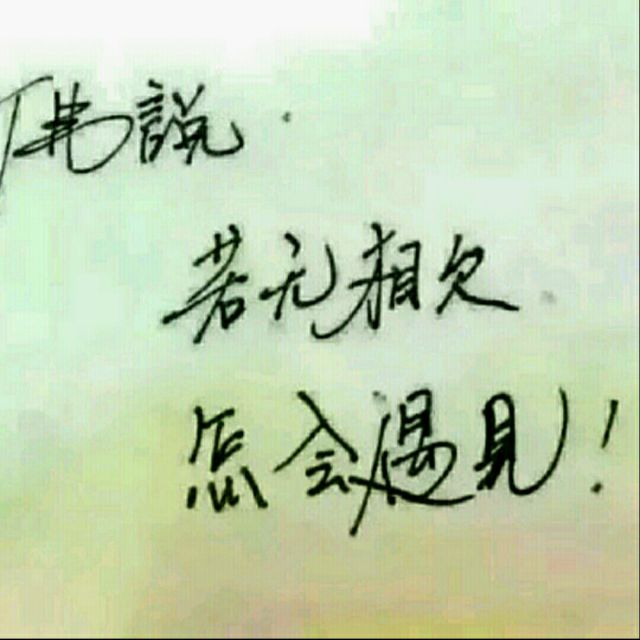 佛說.
若无相欠.
怎会遇見!